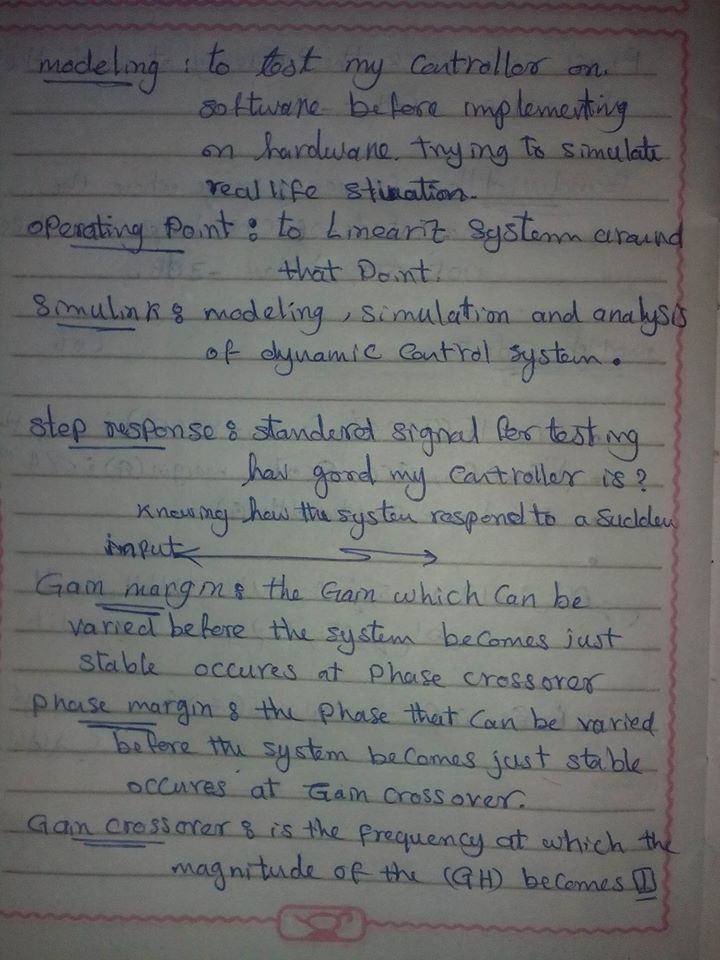 modeling : to test my Controller on
software before implementing
on hardware. trying to simulate
real life stiuation.
operating Point : to Lineariz System around
that Point.
Simulink : modeling, simulation and analysis
of dynamic Control system.
step response : standerd signal for testing
how good my Controller is?
Knowing how the system respond to a Sudden
input
Gain margin : the Gain which Can be
varied before the system becomes just
stable occures at Phase crossover
Phase margin : the Phase that Can be varied
before the system becomes just stable
occures at Gain Crossover.
Gain crossover : is the frequency at which the
magnitude of the (GH) becomes 1